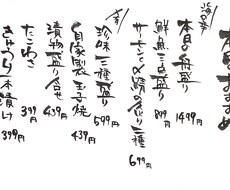 本日のおすすめ
海の幸
本日の舟盛り
1499円
鮮魚三点盛り
899円
サーモンと〆鯖の炙り二種
699円
大幸
珍味三種盛り
599円
自家製玉子焼
439円
漬物盛り合せ
439円
たこわさ
399円
きゅうり一本漬け
399円